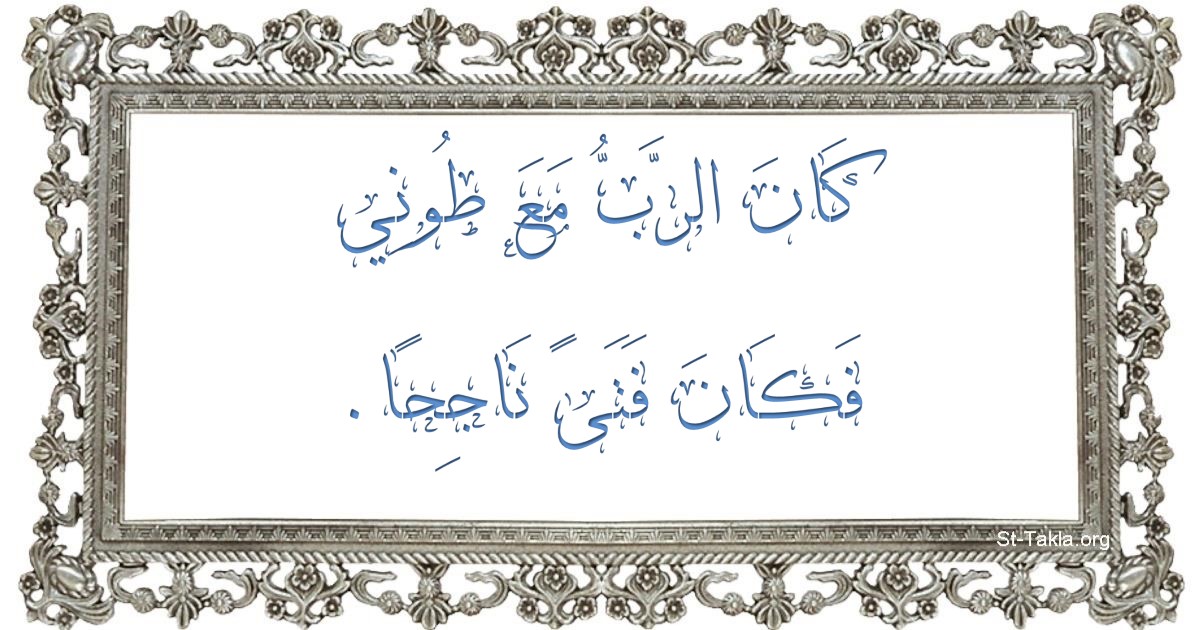 كَانَ الرَّبُّ مَعَ طُوني
فَكَانَ فَتَىً نَاجِحًا .
St-Takla.org